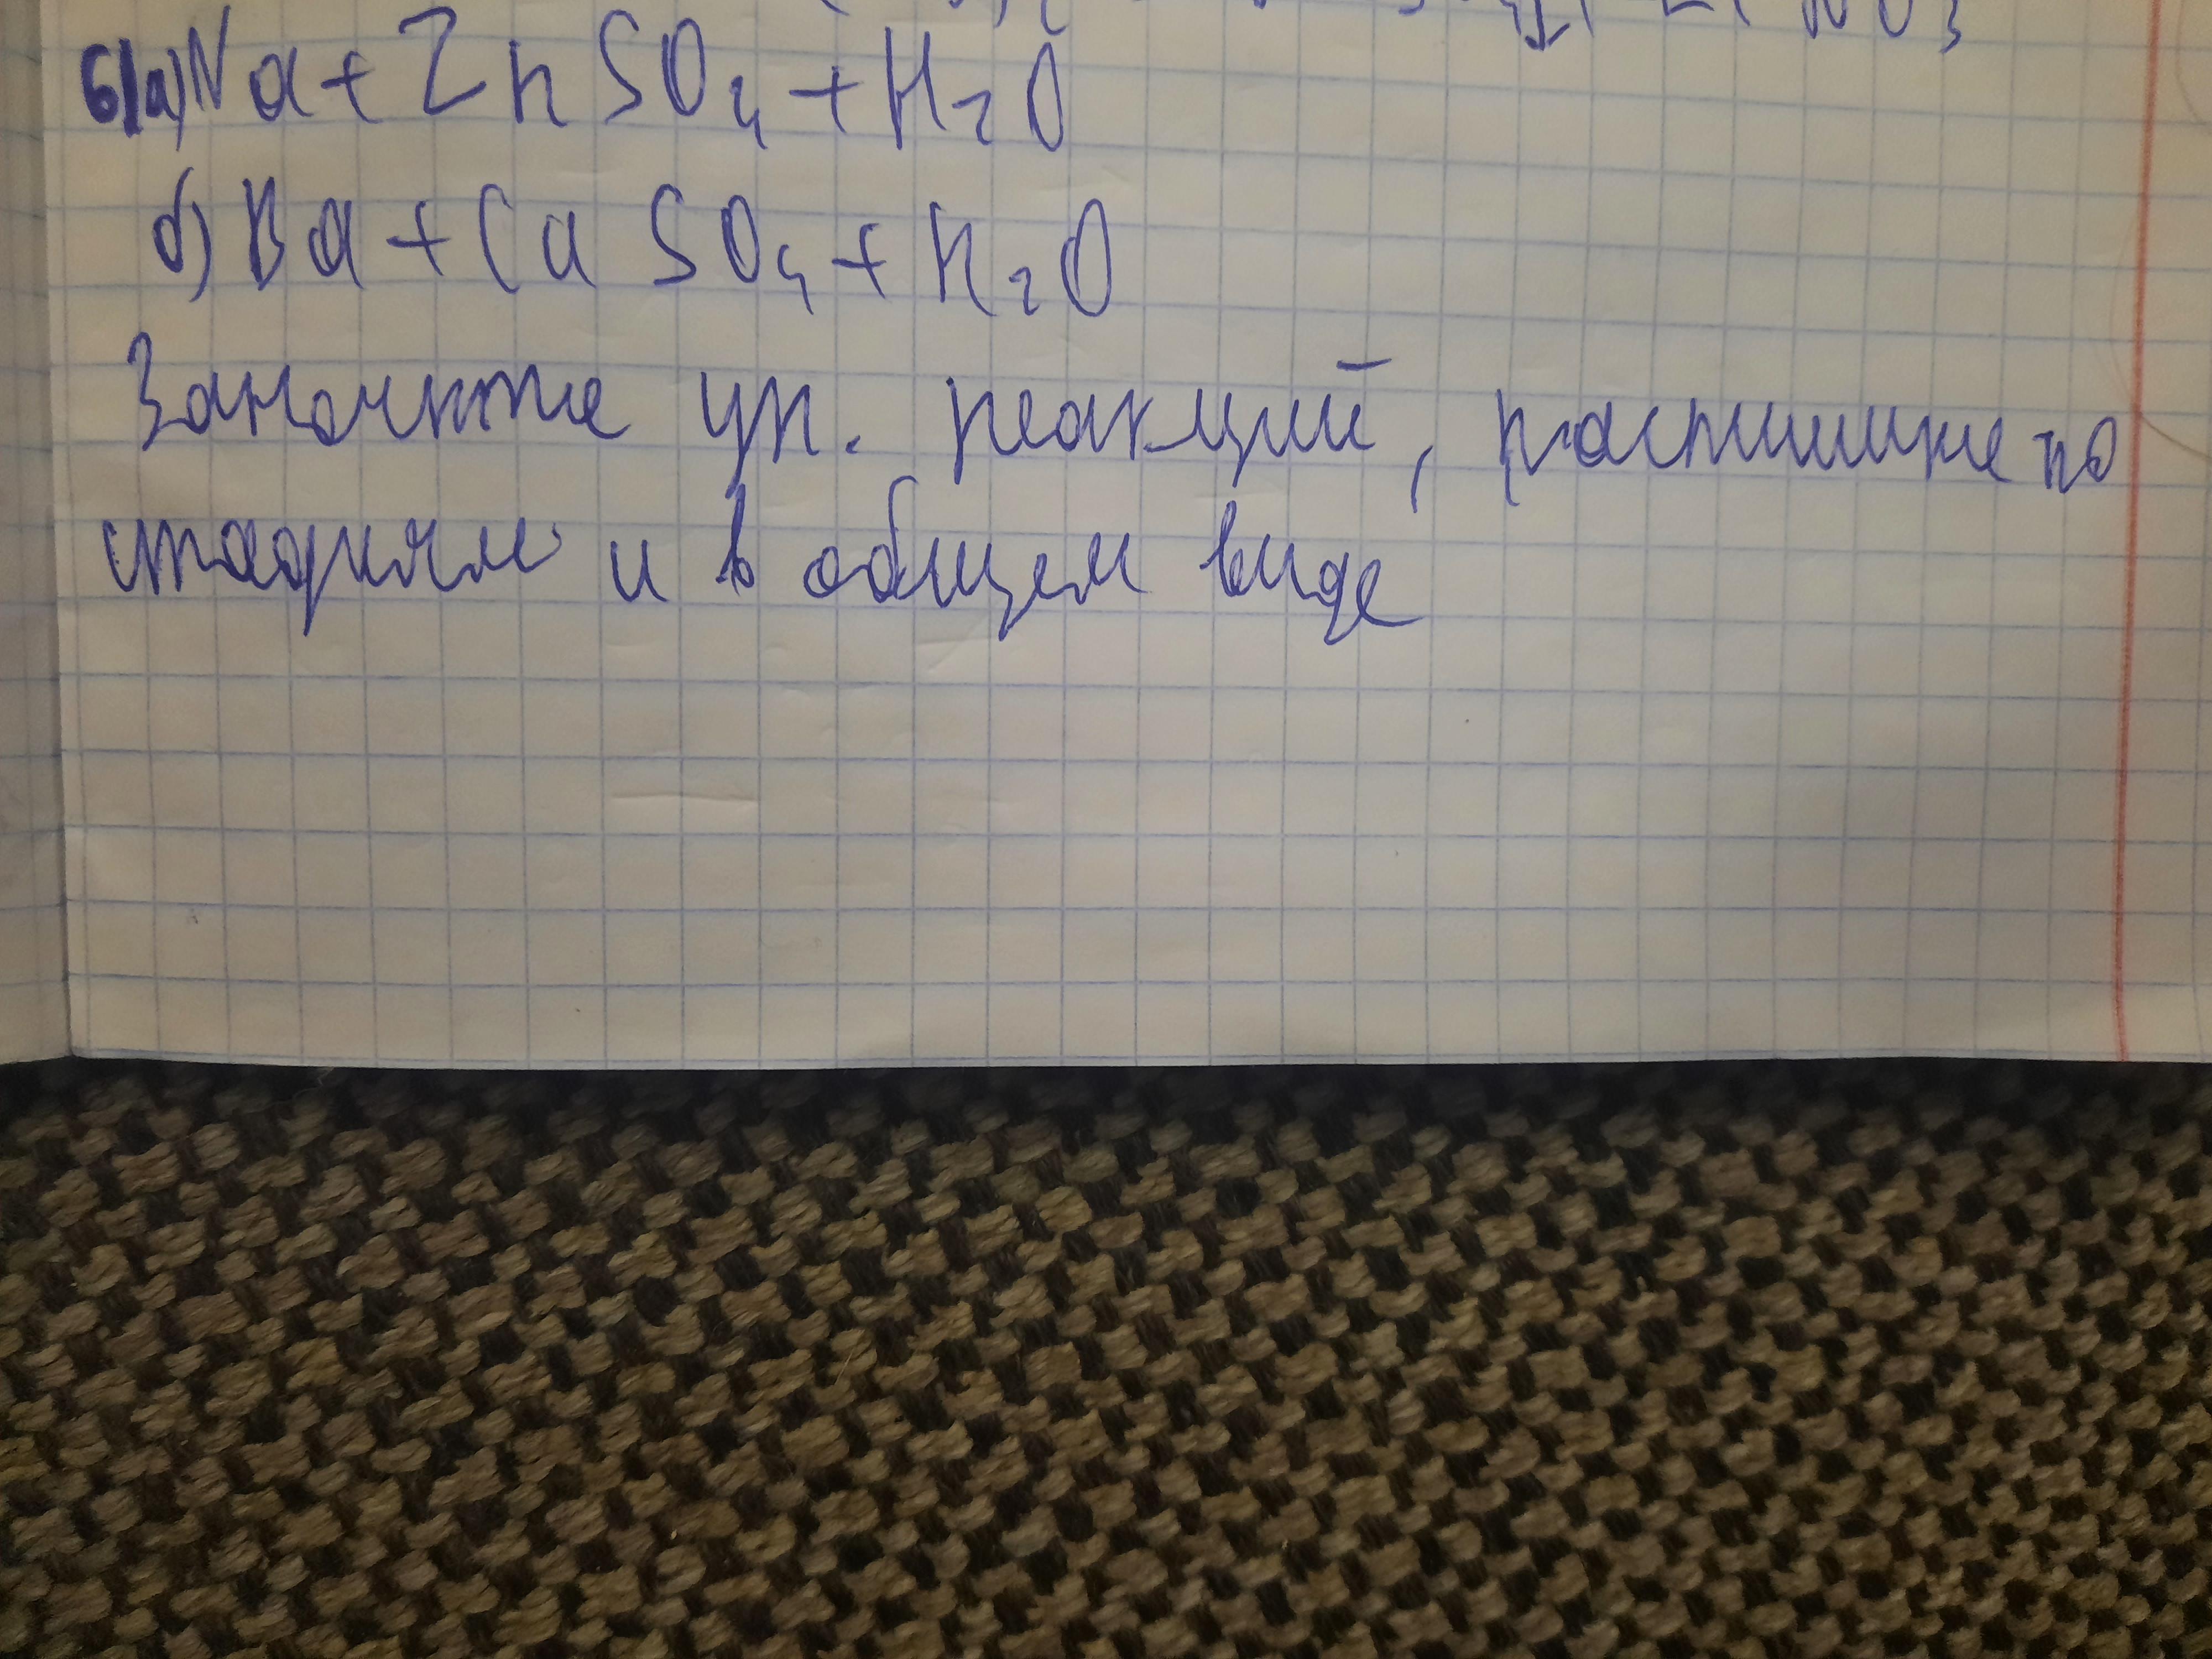 NO3
6) a) Na + ZnSO4 + H2O
б) Ba + CaSO4 + H2O
Закончите ур. реакций, распишите по
стадиям и в общем виде